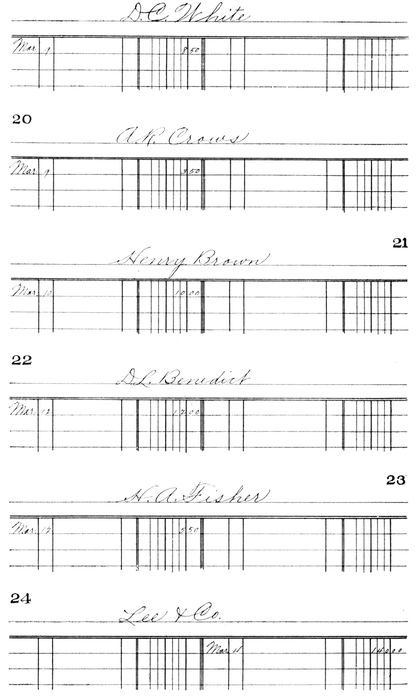 D.C. White
Mar. 9 8 50
20
A.R. Crows
Mar. 9 3 50
21
Henry Brown
Mar. 10 10 00
22
D.L. Benedict
Mar. 12 12 00
23
H.A. Fisher
Mar. 12 2 50
24
Lee & Co.
Mar. 11